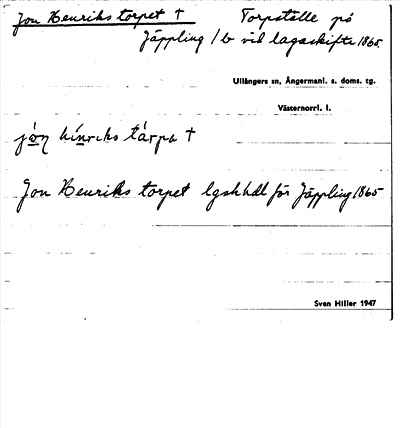 Jon Henriks torpet † Torpställe på
Jäppling 1b vid lagaskifte 1865.
Ullångers sn, Ångermanl. s. doms. tg.
Västernorrl. l.
jòn hinriks tárpa †
Jon Henriks torpet lgskhdl för Jäppling 1865
Sven Hiller 1947